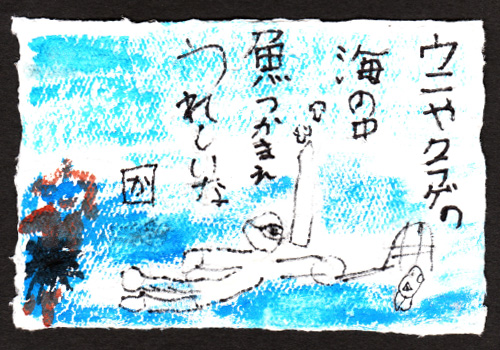 ウニやクラゲの
海の中
魚つかまえ
うれしいな
か